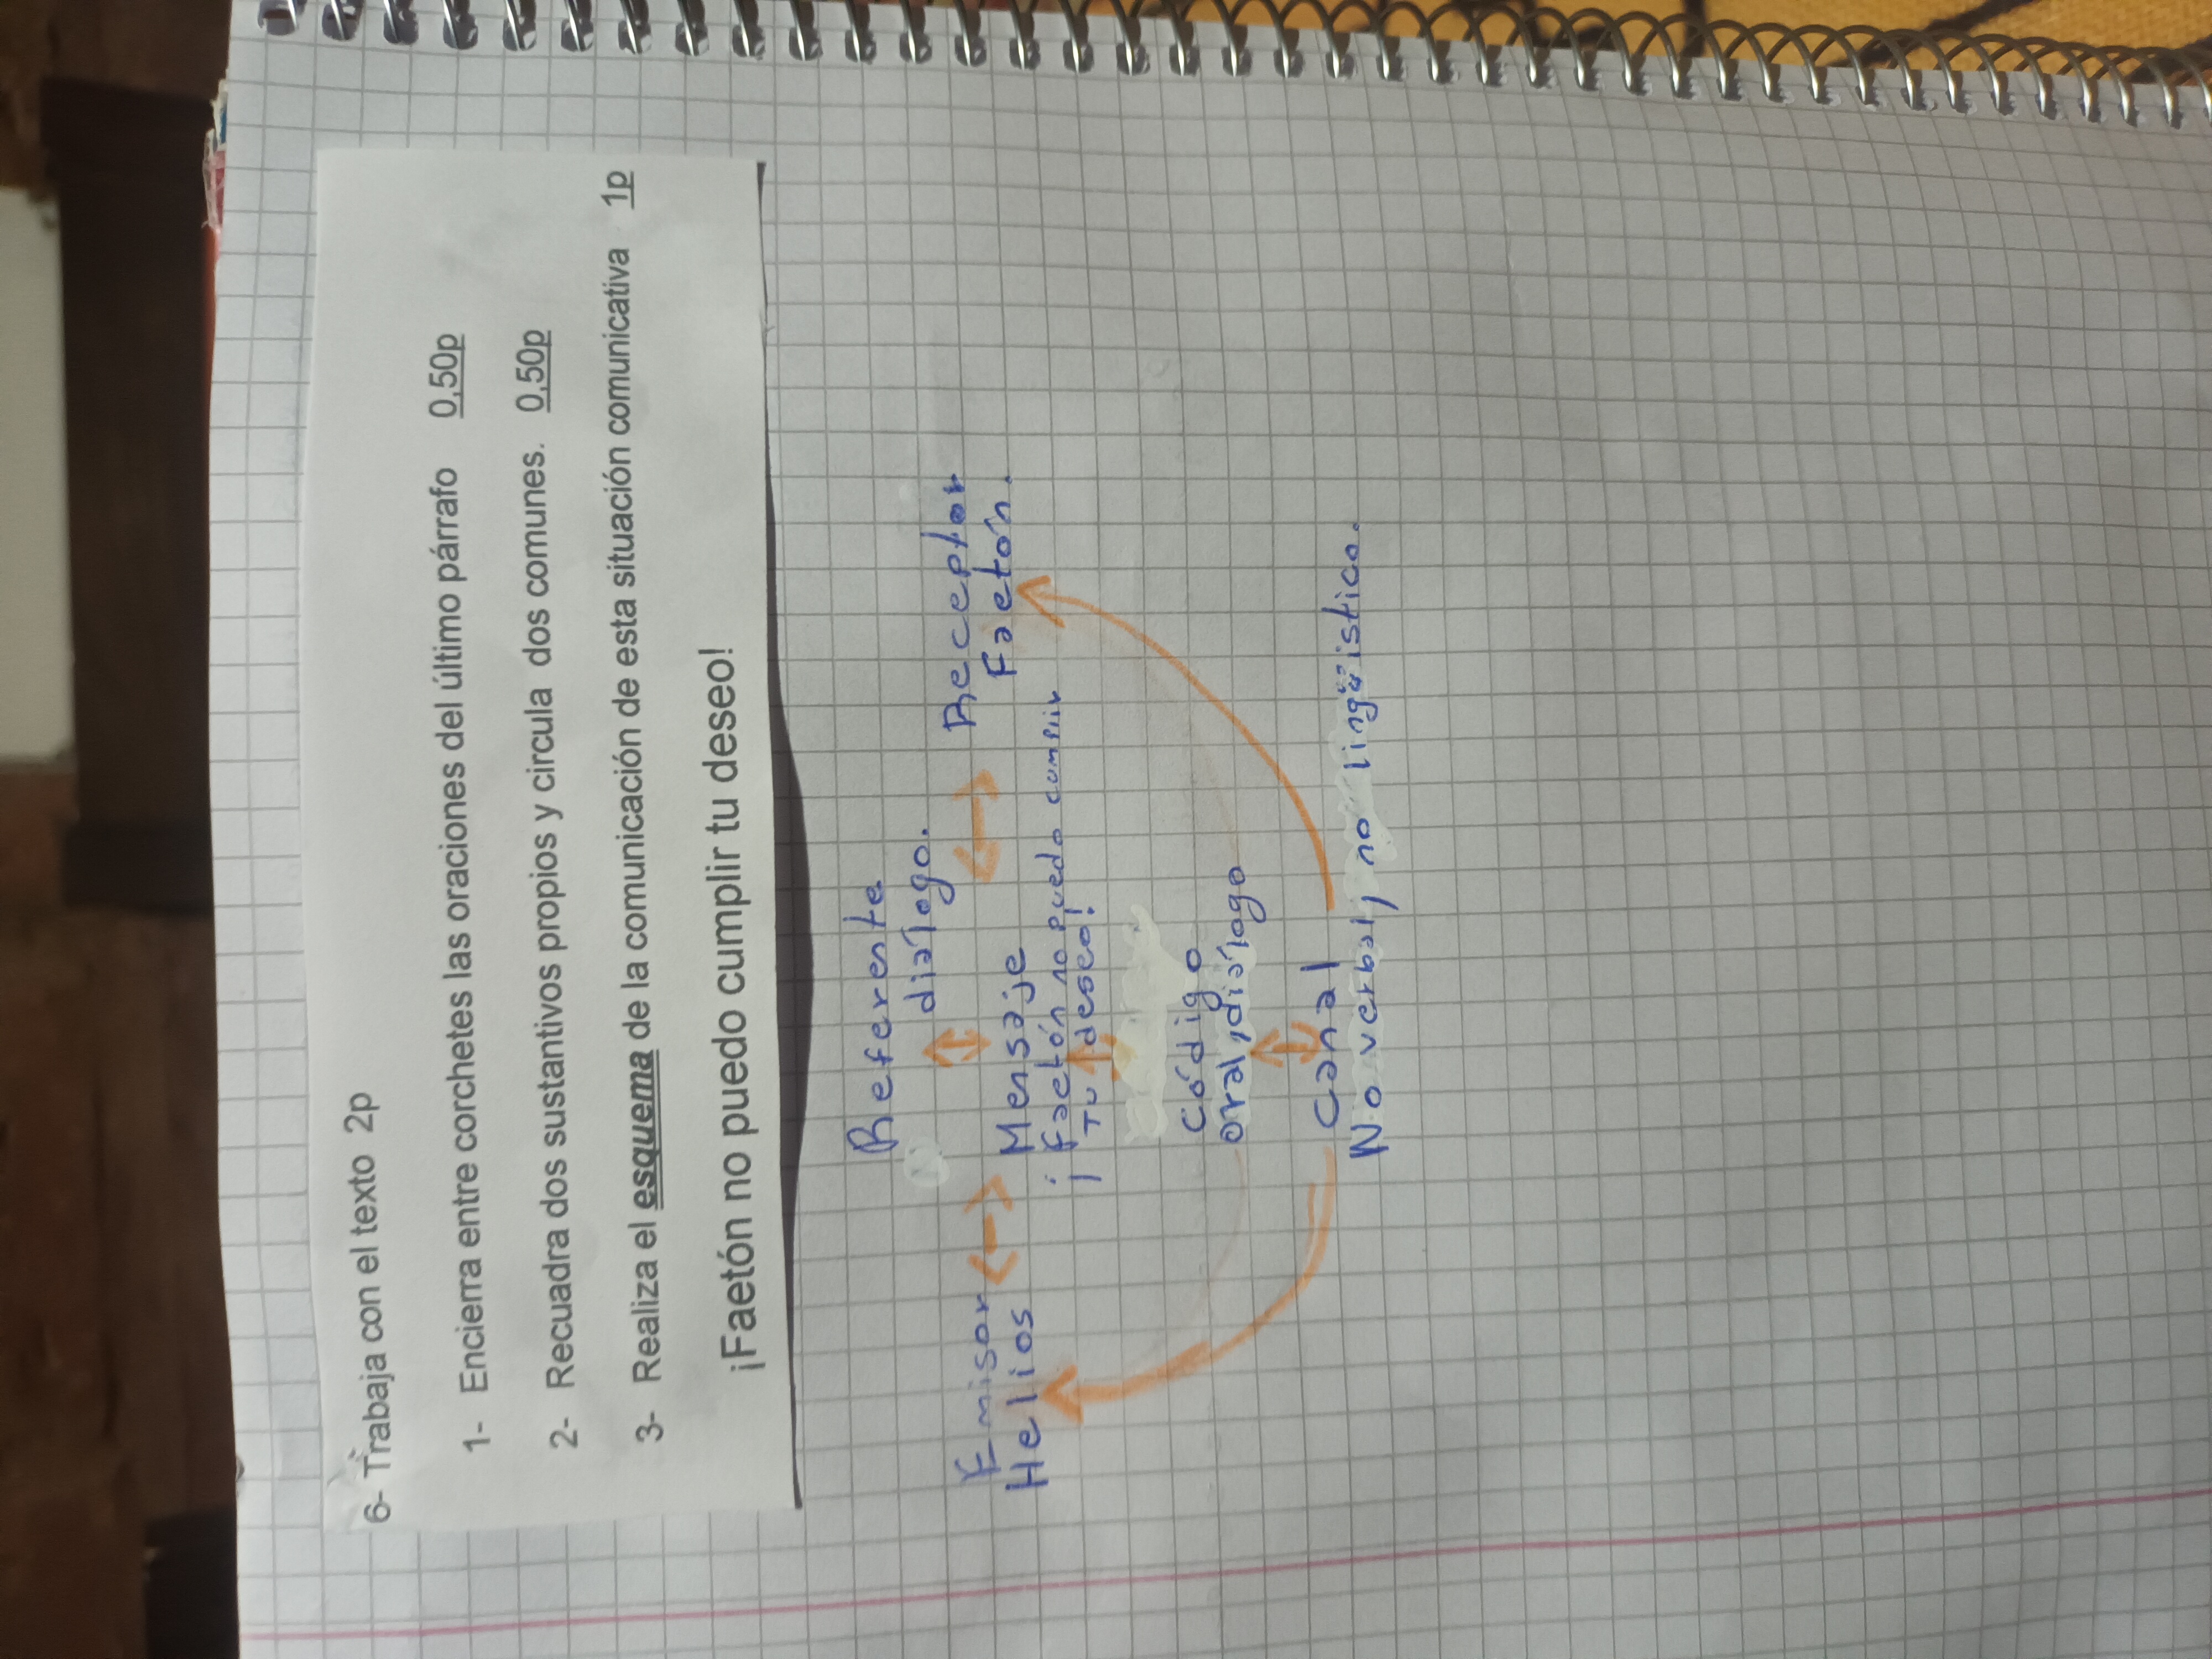 6- Trabaja con el texto 2p
1- Encierra entre corchetes las oraciones del último párrafo 0,50p
2- Recuadra dos sustantivos propios y circula dos comunes. 0,50p
3- Realiza el esquema de la comunicación de esta situación comunicativa 1p
¡Faetón no puedo cumplir tu deseo!
Referente
diálogo.
Emisor
Helios
Mensaje
¡Faetón no puedo cumplir
Tu deseo!
Receptor
Faetón.
Código
oral, diálogo
Canal
No verbal, no lingüistico.